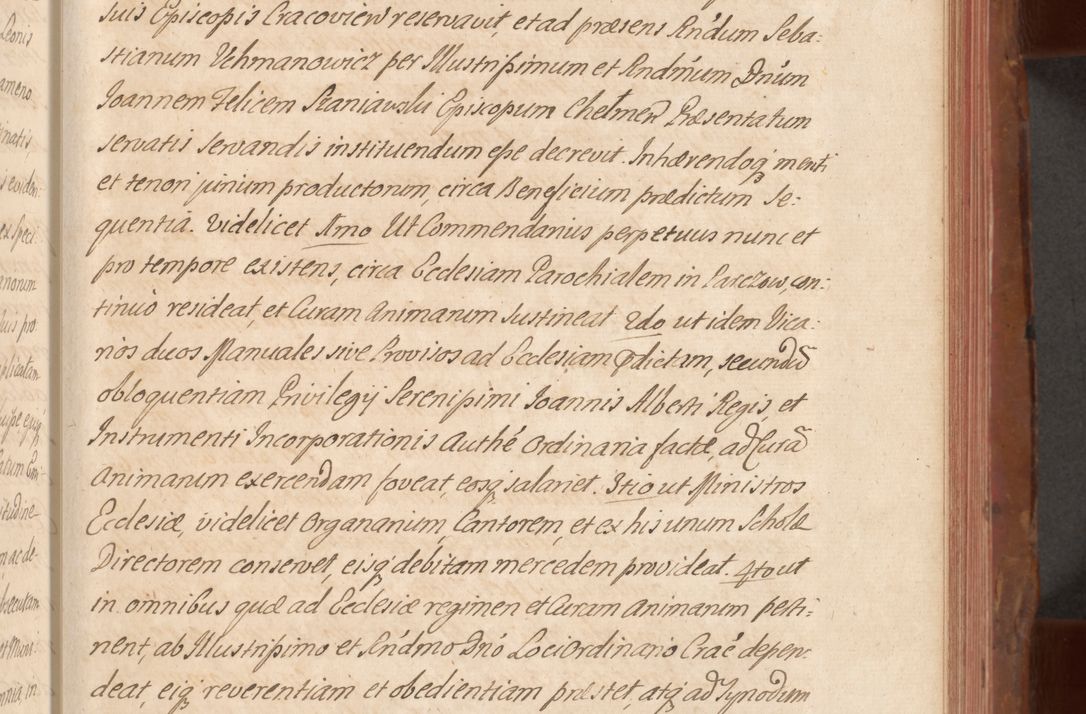 suis Episcopis Cracovien reservavit, et ad præsens Rńdum Seba:
stianum Uhmanowicz per Illustrissimum et Rndm̃um Dńum
Joannem Felicem Szaniawski Episcopum Chelmeń Præsentatum
servatis servandis instituendum esse decrevit. Inhærendoq menti
et tenori jurium productorum, circa Beneficium prædictum Se:
quentia. Videlicet 1mo Ut Commendarius perpetuus nunc et
pro tempore existens, circa Ecclesiam Parochialem in Parczow, con:
tinuò resideat, et Curam Animarum sustineat 2do ut idem Vica:
rios duos Manuales sive Provisos ad Ecclesiam pdictam, secundū
obloquentiam Privilegij Serenissimi Joannis Alberti Regis, et
Instrumenti Incorporationis Authē Ordinaria factæ, ad Curā
Animarum exercendam foveat, eosq salariet. 3tio ut Ministros
Ecclesiæ, videlicet Organarium, Cantorem, et ex his unum Scholæ
Directorem conservet, eisq debitam mercedem provideat 4to ut
in omnibus quæ ad Ecclesiæ regimen et Curam Animarum perti:
nent, ab Illustrissimo et Rńdmo Dńo Loci Ordinario Crać depen:
deat, eiq reverentiam et obedientiam præstet, atq ad Synodum
Leonis
natis,
plicatam
itudine
n ac de